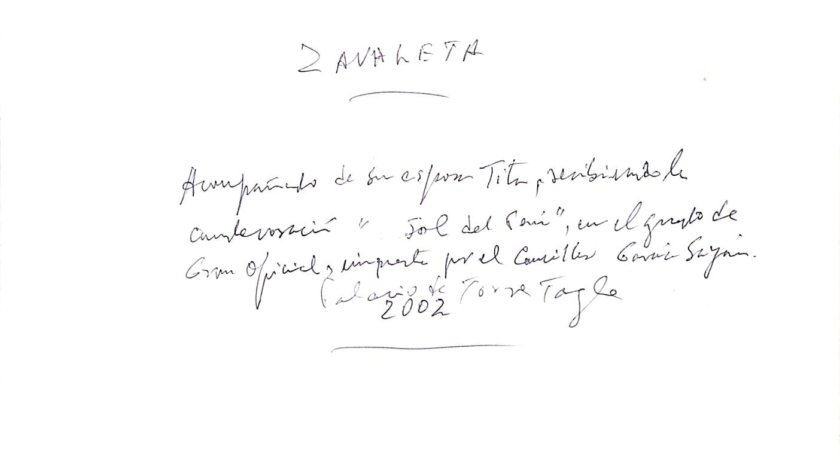 ZAVALETA
Acompañado de su esposa Tita, recibiendo la
condecoración " Sol del Perú", en el grado de
Gran Oficial, impuesta por el Canciller García Sayán.
Palacio de Torre Tagle
2002